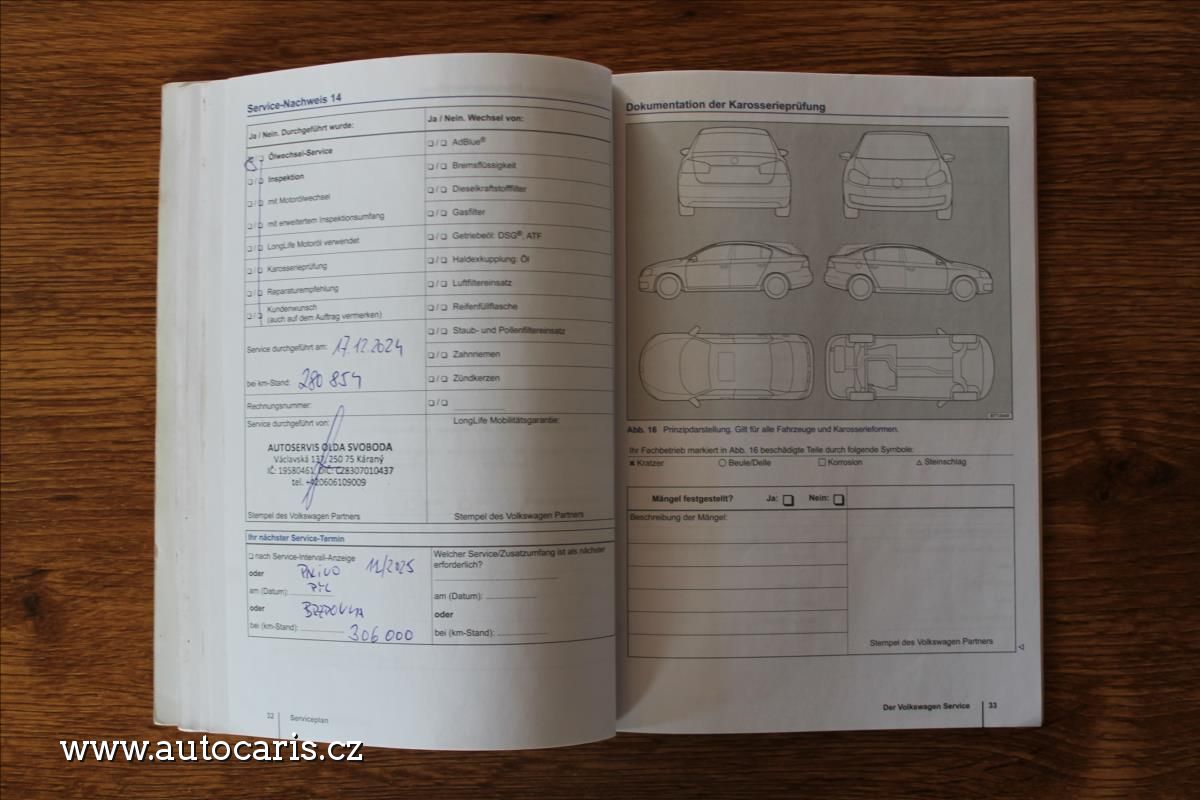 Service-Nachweis 14
Ja / Nein. Durchgeführt wurde:
Ölwechsel-Service
Inspektion
mit Motorölwechsel
mit erweitertem Inspektionsumfang
LongLife Motoröl verwendet
Karosserieprüfung
Reparaturempfehlung
Kundenwunsch
(auch auf dem Auftrag vermerken)
Service durchgeführt am: 17.12.2024
bei km-Stand: 280 854
Rechnungsnummer:
Service durchgeführt von:
AUTOSERVIS OLDA SVOBODA
Václavská 137, 250 75 Káraný
IČ: 19580461, DIČ: CZ8307010437
tel. +420606109009
Stempel des Volkswagen Partners
Ja / Nein. Wechsel von:
❏ / ❏ AdBlue®
❏ / ❏ Bremsflüssigkeit
❏ / ❏ Dieselkraftstofffilter
❏ / ❏ Gasfilter
❏ / ❏ Getriebeöl: DSG®, ATF
❏ / ❏ Haldexkupplung: Öl
❏ / ❏ Luftfiltereinsatz
❏ / ❏ Reifenfüllflasche
❏ / ❏ Staub- und Pollenfiltereinsatz
❏ / ❏ Zahnriemen
❏ / ❏ Zündkerzen
❏ / ❏
LongLife Mobilitätsgarantie:
Stempel des Volkswagen Partners
Ihr nächster Service-Termin
❏ nach Service-Intervall-Anzeige
oder PALIVO 11/2025
am (Datum): PYL
oder BRZDOVKA
bei (km-Stand): 306 000
Welcher Service/Zusatzumfang ist als nächster
erforderlich?
am (Datum):
oder
bei (km-Stand):
32 Serviceplan
Dokumentation der Karosserieprüfung
Abb. 16 Prinzipdarstellung. Gilt für alle Fahrzeuge und Karosserieformen.
Ihr Fachbetrieb markiert in Abb. 16 beschädigte Teile durch folgende Symbole:
Kratzer Beule/Delle Korrosion Steinschlag
Mängel festgestellt? Ja: ❏ Nein: ❏
Beschreibung der Mängel:
Stempel des Volkswagen Partners
Der Volkswagen Service 33
www.autocaris.cz